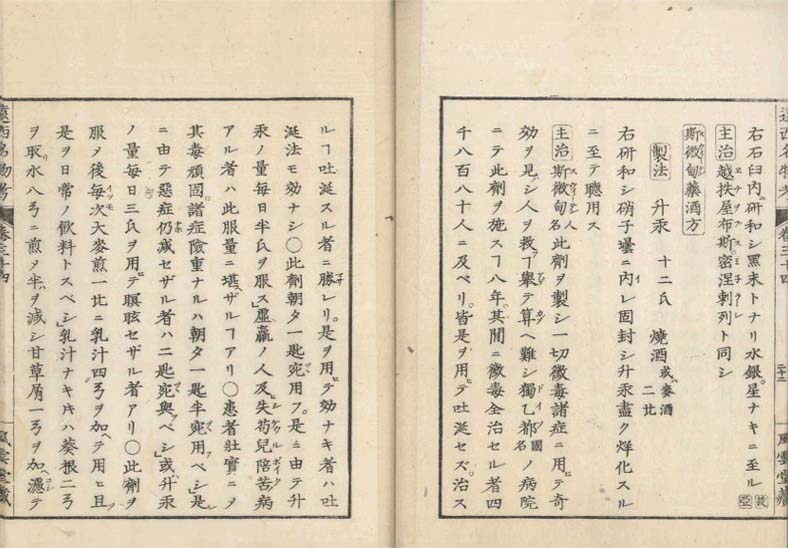 右石臼内ニ研和シ黒末トナリ水銀星ナキニ至ル
主治 越抉屋布斯密涅剌列ト同シ
斯微甸藥酒方
製法 升汞 十二氏 燒酒或ハ麥酒 二比
右研和シ硝子壜ニ内レ固封シ升汞盡ク烊化スル
ニ至テ聴用ス
主治 斯微甸名人此劑ヲ製シ一切黴毒諸症ニ用テ奇
効ヲ見シ人ヲ救フヿ舉テ算ヘ難シ獨乙都國名ノ病院
ニテ此劑ヲ施スヿ八年其間ニ黴毒全治セル者四
千八百八十人ニ及ベリ皆是ヲ用テ吐涎セズ治ス
遠西名物考 卷三十四 三十三 風雲堂藏
ルヿ吐涎スル者ニ勝レリ是ヲ用テ効ナキ者ハ吐
涎法モ効ナシ〇此劑朝夕一匙宛用フ是ニ由テ升
汞ノ量毎日半氏ヲ服ス虚羸ノ人及失苟兒陪苦病
アル者ハ此服量ニ堪ザルヿアリ〇患者壯實ニメ
其毒頑固諸症險重ナルハ朝夕一匙半宛用ベシ是
ニ由テ惡症仍減セザル者ハ二匙宛與ベシ或升汞
ノ量毎日三氏ヲ用テ瞑眩セザル者アリ〇此劑ヲ
服メ後毎次大麥煎一比ニ乳汁四弓ヲ加テ用ヒ且
是ヲ日常ノ飲料トスベシ乳汁ナキ𪜈ハ葵根二弓
ヲ取水八弓ニ煎メ半ヲ減シ甘草屑一弓ヲ加濾テ
遠西名物考 卷三十四 風雲堂藏